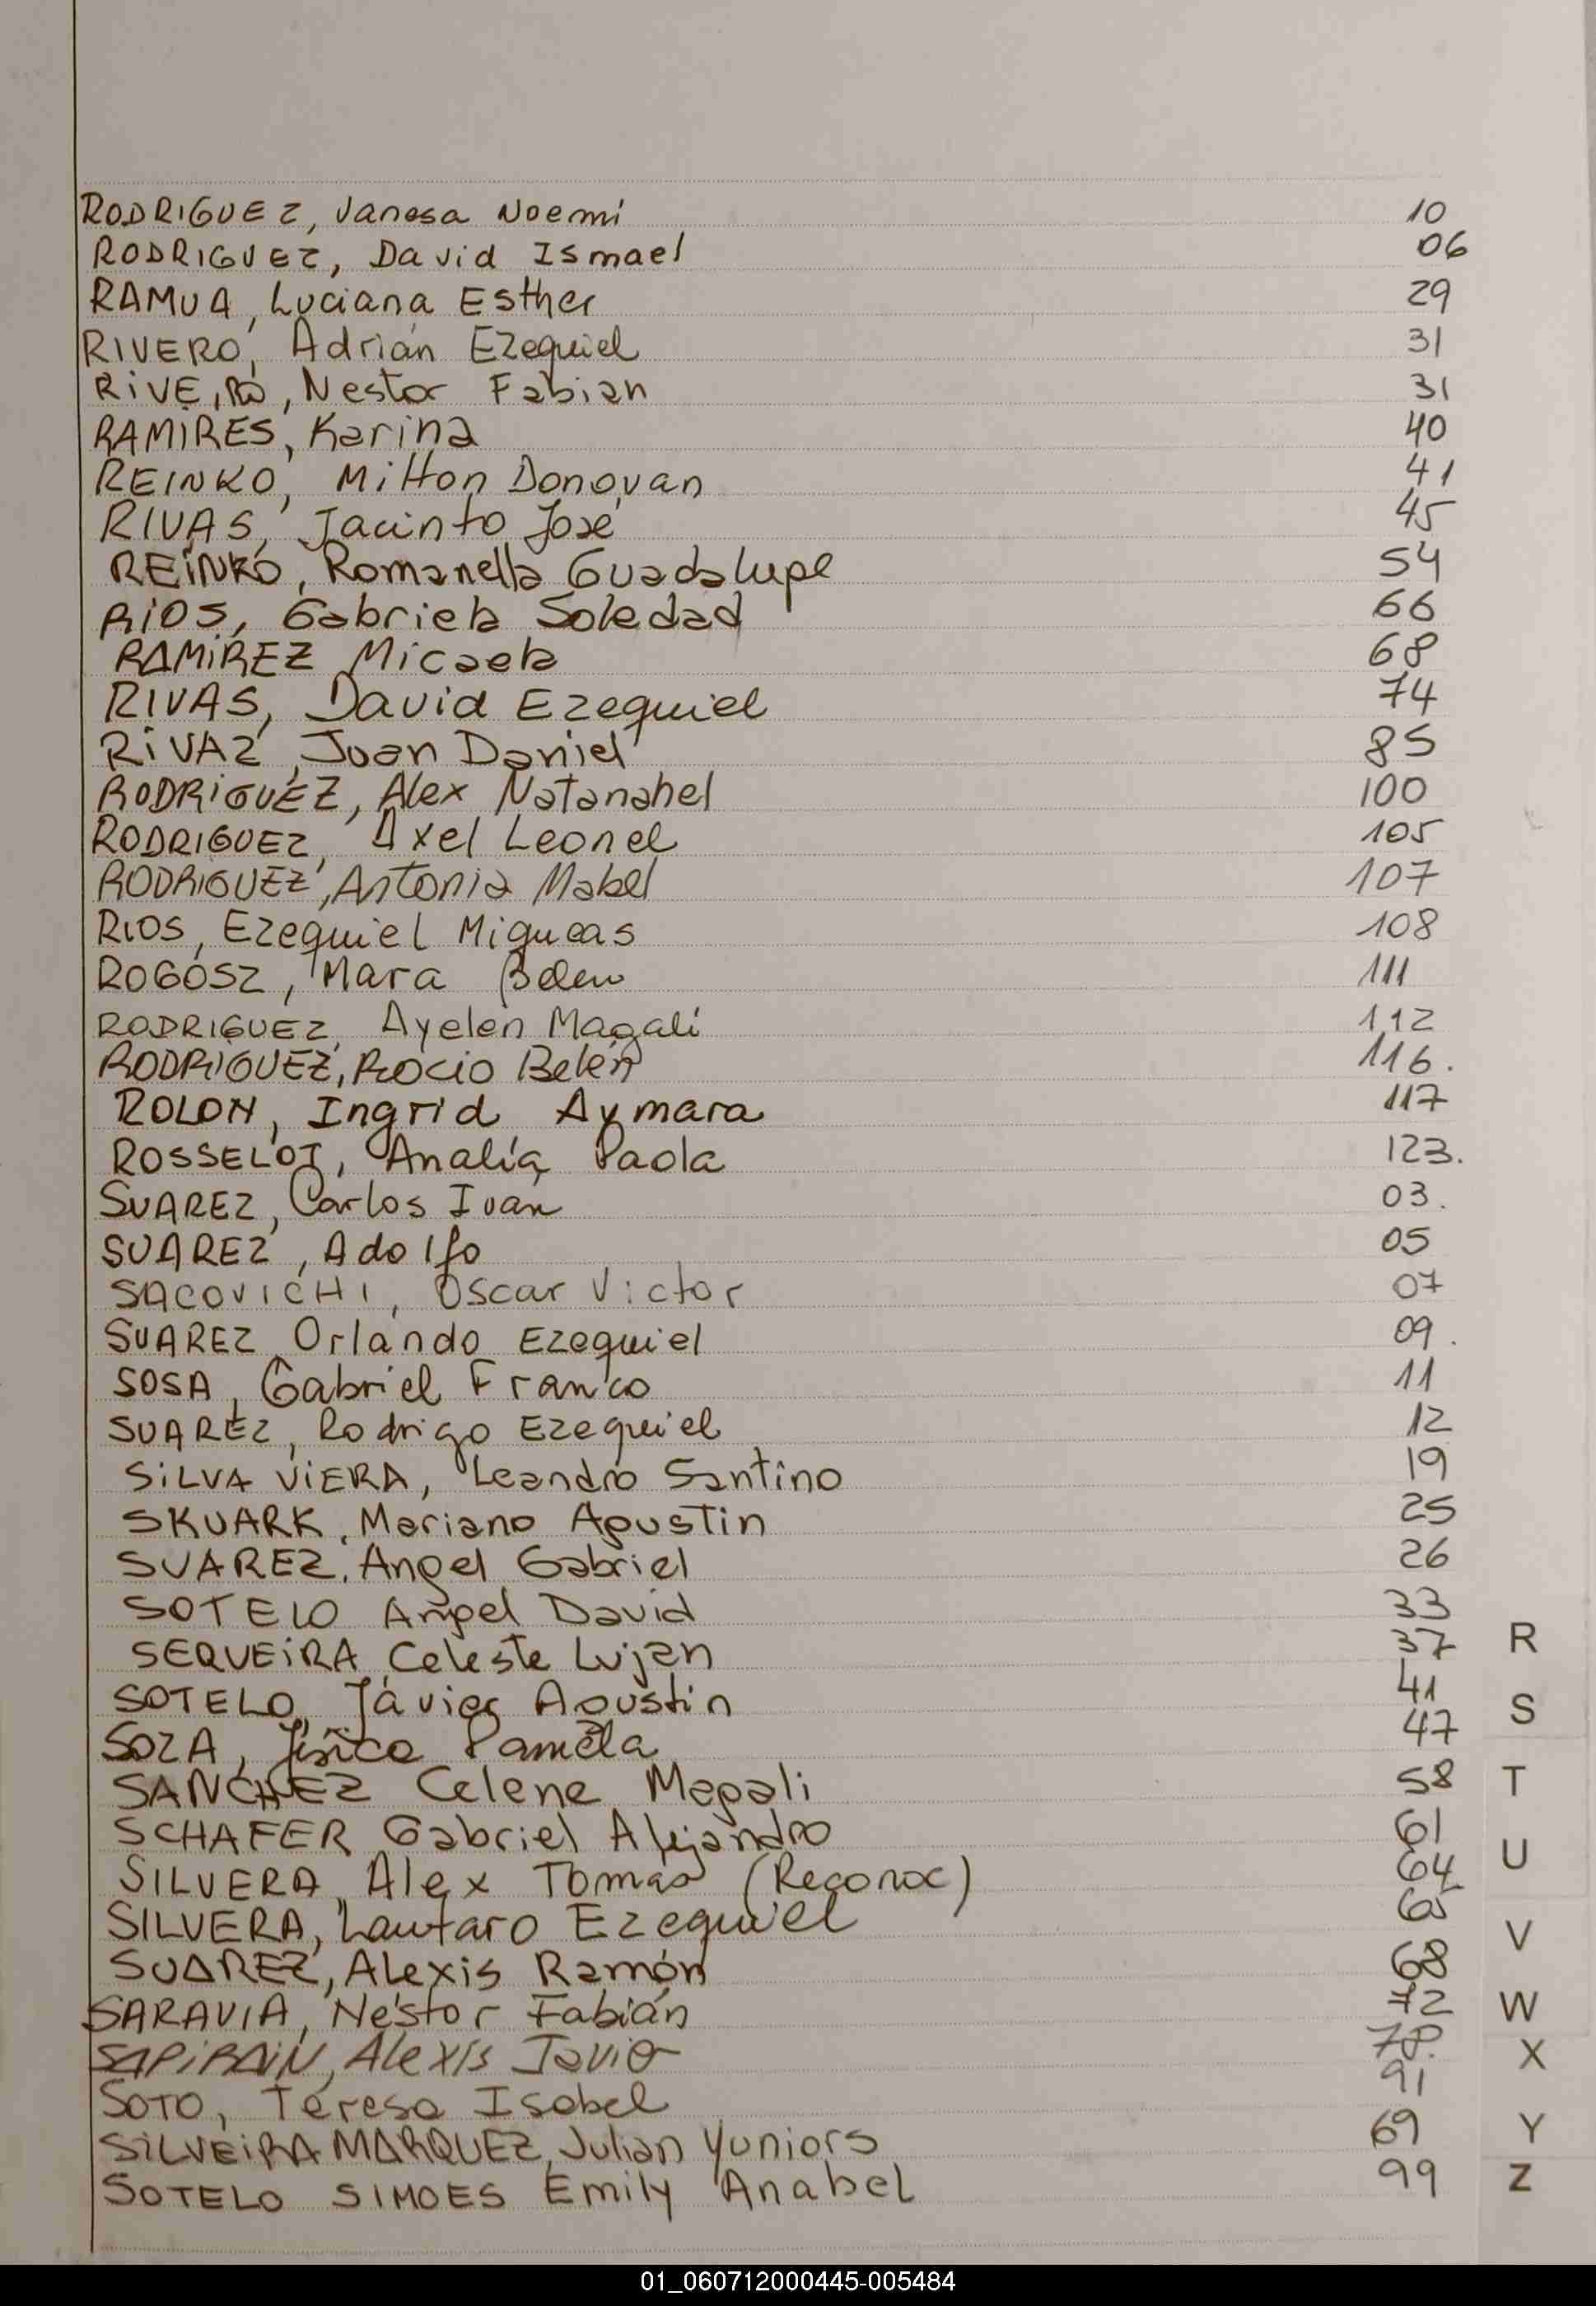 RODRIGUEZ, Vanesa Noemi 10
RODRIGUEZ, David Ismael 06
RAMUA, Luciana Esther 29
RIVERO, Adrián Ezequiel 31
RIVEIRO, Nestor Fabian 31
RAMIRES, Karina 40
REINKO, Milton Donovan 41
RIVAS, Jacinto José 45
REINKO, Romanella Guadalupe 54
RIOS, Gabriela Soledad 66
RAMIREZ Micaela 68
RIVAS, David Ezequiel 74
RIVAZ, Juan Daniel 85
RODRIGUEZ, Alex Natanahel 100
RODRIGUEZ, Axel Leonel 105
RODRIGUEZ, Antonia Mabel 107
RIOS, Ezequiel Migueas 108
ROGOSZ, Mara Belen 111
RODRIGUEZ, Ayelén Magali 112
RODRIGUEZ, Rocio Belén 116.
ROLON, Ingrid Aymara 117
ROSSELOT, Analía Paola 123.
SUAREZ, Carlos Ivan 03.
SUAREZ, Adolfo 05
SACOVICHI, Oscar Victor 07
SUAREZ, Orlando Ezequiel 09.
SOSA, Gabriel Franco 11
SUAREZ, Rodrigo Ezequiel 12
SILVA VIERA, Leandro Santino 19
SKUARK, Mariano Agustin 25
SUAREZ, Angel Gabriel 26
SOTELO Angel David 33
SEQUEIRA, Celeste Lujan 37
SOTELO, Javier Agustin 41
SOZA, Jésica Pamela 47
SANCHEZ Celene Magali 58
SCHAFER Gabriel Alejandro 61
SILVERA, Alex Tomas (Reconoc) 64
SILVERA, Lautaro Ezequiel 65
SUAREZ, Alexis Ramón 68
SARAVIA, Néstor Fabián 72
Alexis Javier
SOTO, Teresa Isabel 91
SILVEIRA MARQUEZ, Julian Yuniors 69
SOTELO SIMOES Emily Anabel 99
R
S
T
U
V
W
X
Y
Z
01_060712000445-005484